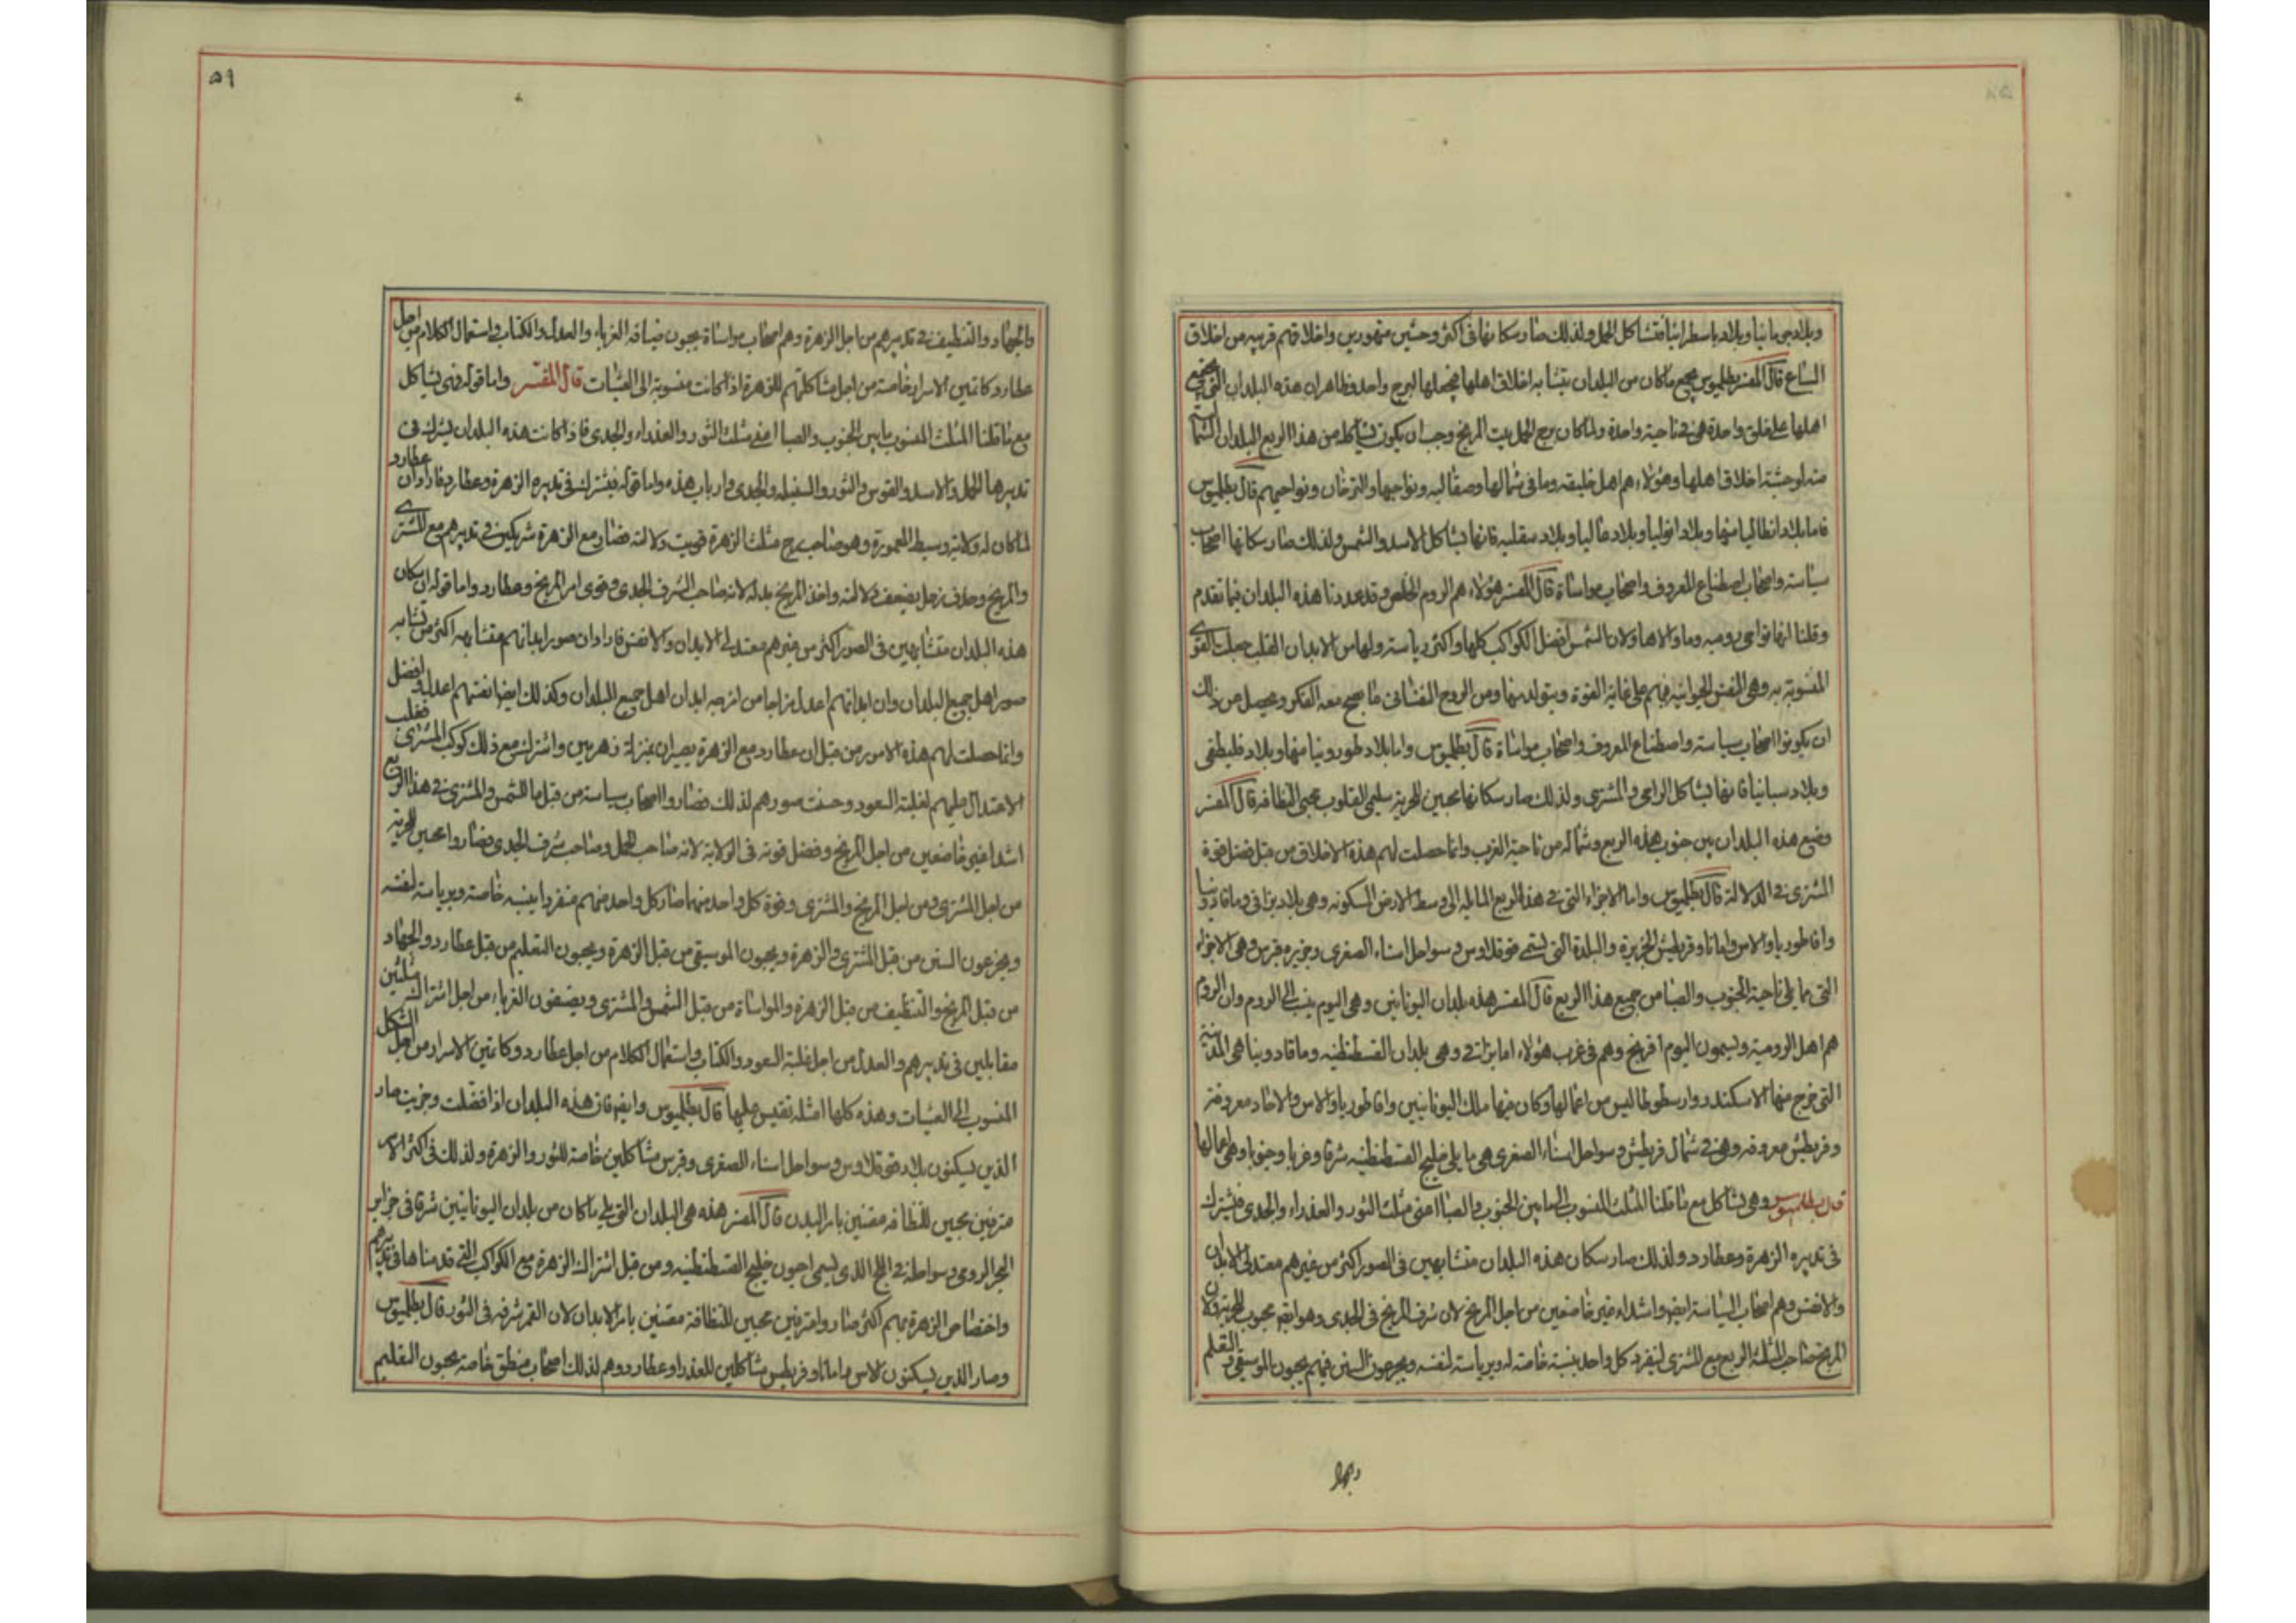 وبلاد جرمانيا وبلاد باسطرانيا فتشاكل الحمل ولذلك صار سكانها في اكثر وحشيين متهورين واخلاقهم قريبه من اخلاق
السباع قال المفسر بطلميوس يجمع ماكان من البلدان يتشابه اخلاق اهلها فيجعلها لبرج واحد فظاهر ان هذه البلدان التي يجتمع
اهلها على خلق واحدة هي في ناحية واحدة ولما كان برج الحمل بيت المريخ وجب ان يكون يشاكله من هذا الربع البلدان
منه لوحشة اخلاق اهلها وهؤلاء هم اهل وما في شمالها وصقالبه ونواحيها ونواحيهم قال بطلميوس
فاما بلاد انطاليا منها وبلاد وبلاد غاليا وبلاد سقليه فانها تشاكل الاسد والشمس ولذلك صار سكانها اصحاب
سياسة واصحاب اصطناع المعروف واصحاب مواساة قال المفسر هؤلاء هم الروم الخلص وقد عددنا هذه البلدان فيما تقدم
وقلنا انها نواحي روميه وما والاها ولان الشمس افضل الكواكب كلها واكثر رياسة ولها من الابدان القلب جعلت القوى
المنسوبة به وهي النفس الحيوانيه فيهم على غاية القوة ويتولد منها ومن الروح النفساني ما يصح معه الفكر ويحصل من ذلك
ان يكونوا اصحاب سياسة واصطناع المعروف واصحاب مواساة قال بطلميوس واما بلاد طورونيا منها وبلاد قليطقي
وبلاد سبانيا فانها تشاكل الرامي والمشتري ولذلك صار سكانها محبين للحرية سليمي القلوب محبي النظافه قال المفسر
وضع هذه البلدان بين جنوب هذه الربع وشماله من ناحية الغرب وانما حصلت لهم هذه الاخلاق من قبل فضل قوة
المشتري في الدلالة قال بطلميوس واما الاجزاء التي في هذا الربع المايله الى وسط الارض المسكونه وهي بلاد براقي وماقادونيا
والاس واماناو قريطش الجزيرة والبلدة التي تسمى قوقلادس وسواحل اسياء الصغرى وجزيره قبرس وهي الاجزاء
التي مما يلي ناحية الجنوب والصبا من جميع هذا الربع قال المفسر هذه بلدان اليونانيين وهي اليوم ينسب الى الروم وان الروم
هم اهل الرومية ويسمون اليوم افرنج وهم في غرب هؤلاء اما براقي وهي بلدان القسطنطنيه وماقادونيا هي المدينة
التي خرج منها الاسكندر وارسطوطاليس من اعمالها وكان منها ملك اليونانيين والاس والاخاد معروفة
وقريطش معروفه وهي في شمال قريطش وسواحل اسياء الصغرى هي ما يلي خليج القسطنطنيه شرقا وغربا وجنوبا وهي اعمالها
قال بطلميوس وهي تشاكل مع ما قلنا المثلث المنسوب الى ما بين الجنوب والصبا اعني مثلث الثور والعذراء والجدي فيشترك
في تدبيره الزهرة وعطارد ولذلك صار سكان هذه البلدان متشابهين في الصور اكثر من غيرهم معتدلي الابدان
والانفس وهم اصحاب السياسة ايضا واشداء غير خاضعين من اجل المريخ لان شرف المريخ في الجدي وهو ايضا يحبون الحرية ولان
المريخ صاحب المثلثة الربع مع المشتري لينفرد كل واحد بنسبة خاصة له وبرياسة لنفسه ويخرجون السنن فيهم يحبون الموسيقى والتعلم
والجهاد والتنظيف في تدبيرهم من اجل الزهرة وهم اصحاب مواساة يحبون ضيافه الغرباء والعدل والكتاب واستعمال الكلام من اجل
عطارد كاتمين الاسرار خاصة من اجل مشاكلتهم للزهرة اذا كانت منسوبة الى العشيات قال المفسر واما قوله وهي تشاكل
مع ما قلنا المثلث المنسوب ما بين الجنوب والصبا اعني مثلث الثور والعذراء والجدي فاذا كانت هذه البلدان يشترك في
تدبيرها الحمل والاسد والقوس والثور والسنبله والجدي وارباب هذه واما قوله فيشترك في تدبيره الزهرة وعطارد فاراد ان عطارد
لما كان له ولاية وسيط المعمورة وهو صاحب برج مثلث الزهرة قويت دلالته فصار مع الزهرة شريكين في تدبيرهم مع المشتري
والمريخ وحذف زحل بضعف دلالته واخذ المريخ بدله لانه صاحب الشرف الجدي وقوى امر المريخ وعطارد واما قوله ان سكان
هذه البلدان متشابهين في الصور اكثر من غيرهم معتدلي الابدان والانفس فاراد ان صور ابدانهم متشابهه اكثر من تشابه
صور اهل جميع البلدان وان ابدانهم اعدل مزاجا من امزجه ابدان اهل جميع البلدان وكذلك ايضا نفسهم اعدل وافضل
وانما حصلت لهم هذه الامور من قبل ان عطارد مع الزهرة يصيران بمنزلة زهرتين واشترك مع ذلك كوكب المشتري فغلب
الاعتدال عليهم لغلبة السعود وحسنت صورهم لذلك فصاروا اصحاب سياسة من قبل ما للشمس والمشتري في هذا الربع
اشداء غير خاضعين من اجل المريخ وفضل قوته في الولاية لانه صاحب الحمل وصاحب شرف الجدي فصاروا محبين للحرية
من اجل المشتري ومن اجل المريخ والمشتري وقوة كل واحد منهما صار كل واحد منهم منفردا بنسبه خاصة وبرياسة لنفسه
ويخرعون السنن من قبل المشتري والزهرة ويحبون الموسيقى من قبل الزهرة ويحبون التعليم من قبل عطارد والجهاد
من قبل المريخ والتنظيف من قبل الزهرة والمواساة من قبل الشمس والمشتري ويضيفون الغرباء من اجل اشتراك مثلثين
مقابلين في تدبيرهم والعدل من اجل غلبة السعود والكتاب واستعمال الكلام من اجل عطارد وكاتمين الاسرار من اجل الشكل
المنسوب الى العشيات وهذه كلها امثله تقيس عليها قال بطلميوس وايضا فان هذه البلدان اذا فصلت وجزيت صار
الذين يسكنون بلاد قوقلادس وسواحل اسياء الصغرى وقبرس مشاكلين خاصة للثور والزهرة ولذلك في اكثر الامر
مترفين محبين للنظافه معتنين بامر البدن قال المفسر هذه هي البلدان التي يلي ماكان من بلدان اليونانيين شرقا في جزاير
البحر الرومي وسواحله في الخليج الذي يسمى اجون خليج القسطنطنيه ومن قبل اشتراك الزهرة مع الكواكب التي قدمناها في تدبيرهم
واختصاص الزهرة بهم اكثر صاروا مترفين محبين للنظافة معتنين بامر الابدان لان القمر شرفه في الثور قال بطلميوس
وصار الذين يسكنون الاس واماناو قريطس مشاكلين للعذراء وعطارد وهم لذلك اصحاب منطق خاصة يحبون التعليم
٥٩